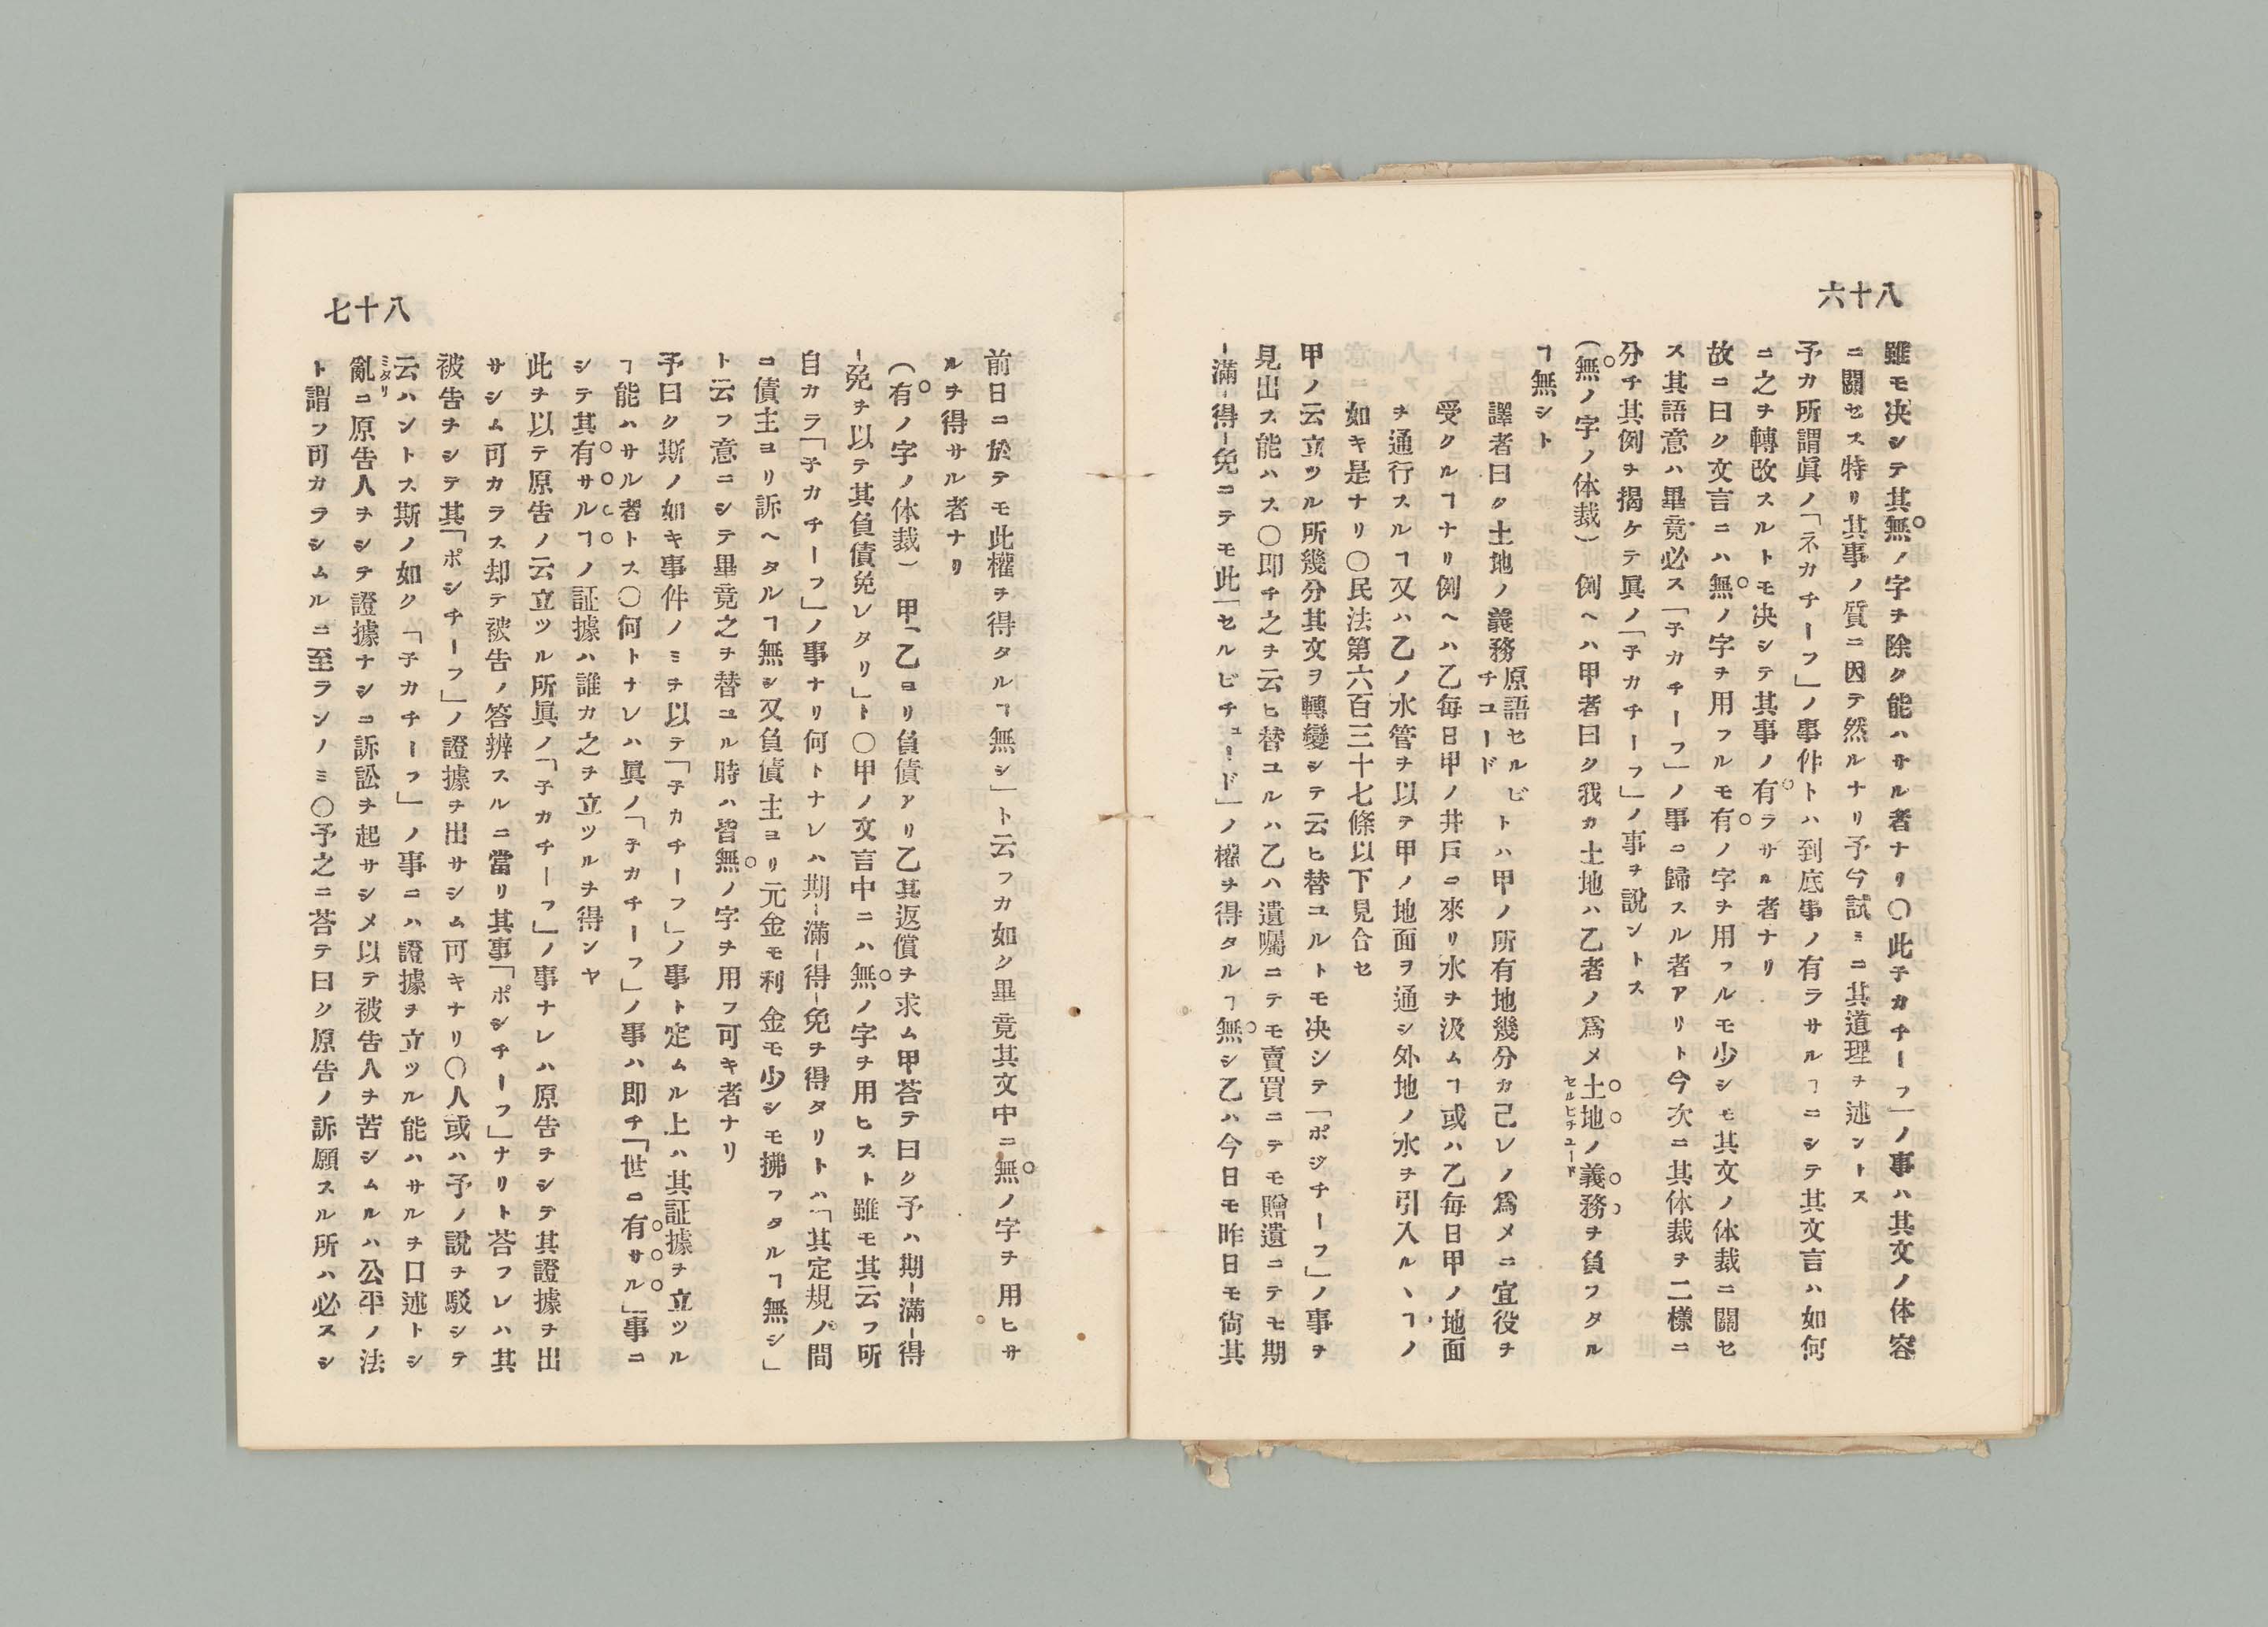 八十六
雖モ决シテ其無ノ字ヲ除ク能ハサル者ナリ〇此子カチーフ」ノ事ハ其文ノ体容
ニ關セス特リ其事ノ質ニ因テ然ルナリ予今試ミニ其道理ヲ述ントス
予カ所謂眞ノ「ネカチーフ」ノ事件トハ到底事ノ有ラサルヿニシテ其文言ハ如何
ニ之ヲ轉改スルトモ决シテ其事ノ有ラサル者ナリ
故ニ曰ク文言ニハ無ノ字ヲ用フルモ有ノ字ヲ用フルモ少シモ其文ノ体裁ニ關セ
ス其語意ハ畢竟必ス「子カチーフ」ノ事ニ歸スル者アリト今次ニ其体裁ヲ二樣ニ
分チ其例ヲ揭ケテ眞ノ「子カチーフ」ノ事ヲ說ントス
(無ノ字ノ体裁) 例ヘハ甲者曰ク我カ土地ハ乙者ノ爲メ土地ノ義務ヲ負フタル
セルヒチユード
ヿ無シト
譯者曰ク土地ノ義務原語セルビチユードトハ甲ノ所有地幾分カ己レノ爲メニ宜役ヲ
受クルヿナリ例ヘハ乙每日甲ノ井戸ニ來リ水ヲ汲ムヿ或ハ乙每日甲ノ地面
ヲ通行スルヿ又ハ乙ノ水管ヲ以テ甲ノ地面ヲ通シ外地ノ水ヲ引入ルヽヿノ
如キ是ナリ〇民法第六百三十七條以下見合セ
甲ノ云立ツル所幾分其文ヲ轉變シテ云ヒ替ユルトモ决シテ「ポジチーフ」ノ事ヲ
見出ス能ハス〇即チ之ヲ云ヒ替ユルハ乙ハ遺囑ニテモ賣買ニテモ贈遺ニテモ期
-滿-得-免ニテモ此「セルビチュード」ノ權ヲ得タルヿ無シ乙ハ今日モ昨日モ尙其
八十七
前日ニ於テモ此權ヲ得タルヿ無シ」ト云フカ如ク畢竟其文中ニ無ノ字ヲ用ヒサ
ルヲ得サル者ナリ
(有ノ字ノ体裁) 甲「乙ヨリ負債アリ乙其返償ヲ求ム甲荅テ曰ク予ハ期-滿-得
-免ヲ以テ其負債免レタリ」ト〇甲ノ文言中ニハ無ノ字ヲ用ヒスト雖モ其云フ所
自カラ「子カチーフ」ノ事ナリ何トナレハ期-滿-得-免ヲ得タリトハ「其定規ノ間
ニ債主ヨリ訴ヘタルヿ無シ又負債主ヨリ元金モ利金モ少シモ拂フタルヿ無シ」
ト云フ意ニシテ畢竟之ヲ替ユル時ハ皆無ノ字ヲ用フ可キ者ナリ
予曰ク斯ノ如キ事件ノミヲ以テ「子カチーフ」ノ事ト定ムル上ハ其証據ヲ立ツル
ヿ能ハサル者トス〇何トナレハ眞ノ「子カチーフ」ノ事ハ即チ「世ニ有サル」事ニ
シテ其有サルヿノ証據ハ誰カ之ヲ立ツルヲ得ンヤ
此ヲ以テ原告ノ云立ツル所眞ノ「子カチーフ」ノ事ナレハ原告ヲシテ其證據ヲ出
サシム可カラス却テ被告ノ答辨スルニ當リ其事「ポシチーフ」ナリト荅フレハ其
被告ヲシテ其「ポシチーフ」ノ證據ヲ出サシム可キナリ〇人或ハ予ノ說ヲ駁シテ
云ハントス斯ノ如ク「子カチーフ」ノ事ニハ證據ヲ立ツル能ハサルヲ口述トシ
亂ニ原告人ヲシテ證據ナシニ訴訟ヲ起サシメ以テ被告人ヲ苦シムルハ公平ノ法
ミダリ
ト謂フ可カラシムルニ至ランノミ〇予之ニ荅テ曰ク原告ノ訴願スル所ハ必スシ